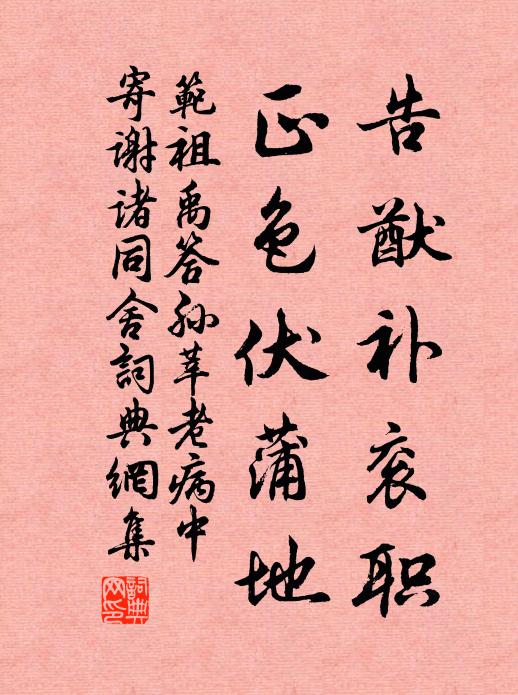 告猷补衮职
正色伏蒲地
範祖禹答孙莘老病中
寄谢诸同舍詞典網集
詞典
网印